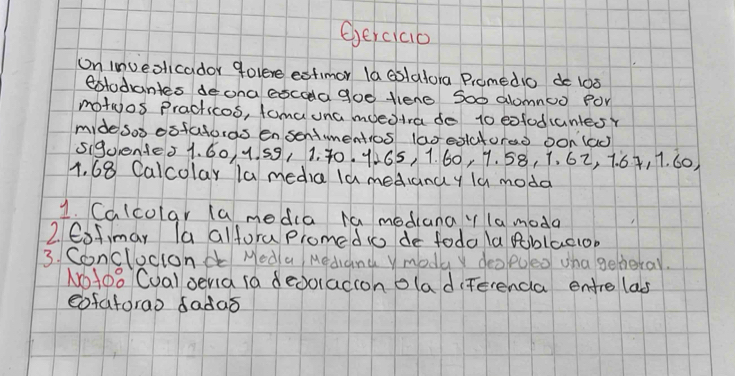 Ejercicio
Un investicador quiere estimar la estatura Promedio de los
estodiantes de una escuela que tiene 500 alumnos Por
motivos Practicos, toma una muestra de 10 estudiantes y
mide sus estaturas en sentimentros las estaturas son las
siguientes 1.60, 1.59, 1.70. 1.65, 1.60, 1.58, 1.62, 1.67, 1.60,
1.68 Calcolar la media la mediana y la moda
1. Calcolar la media la mediana y la moda
2 Estimar la altura Promedio de toda la Poblacion
3. Conclucion de Media Mediana y moda y despues una general.
Nota: Cual seria la desviacion o la diferencia entre las
estaturas dadas